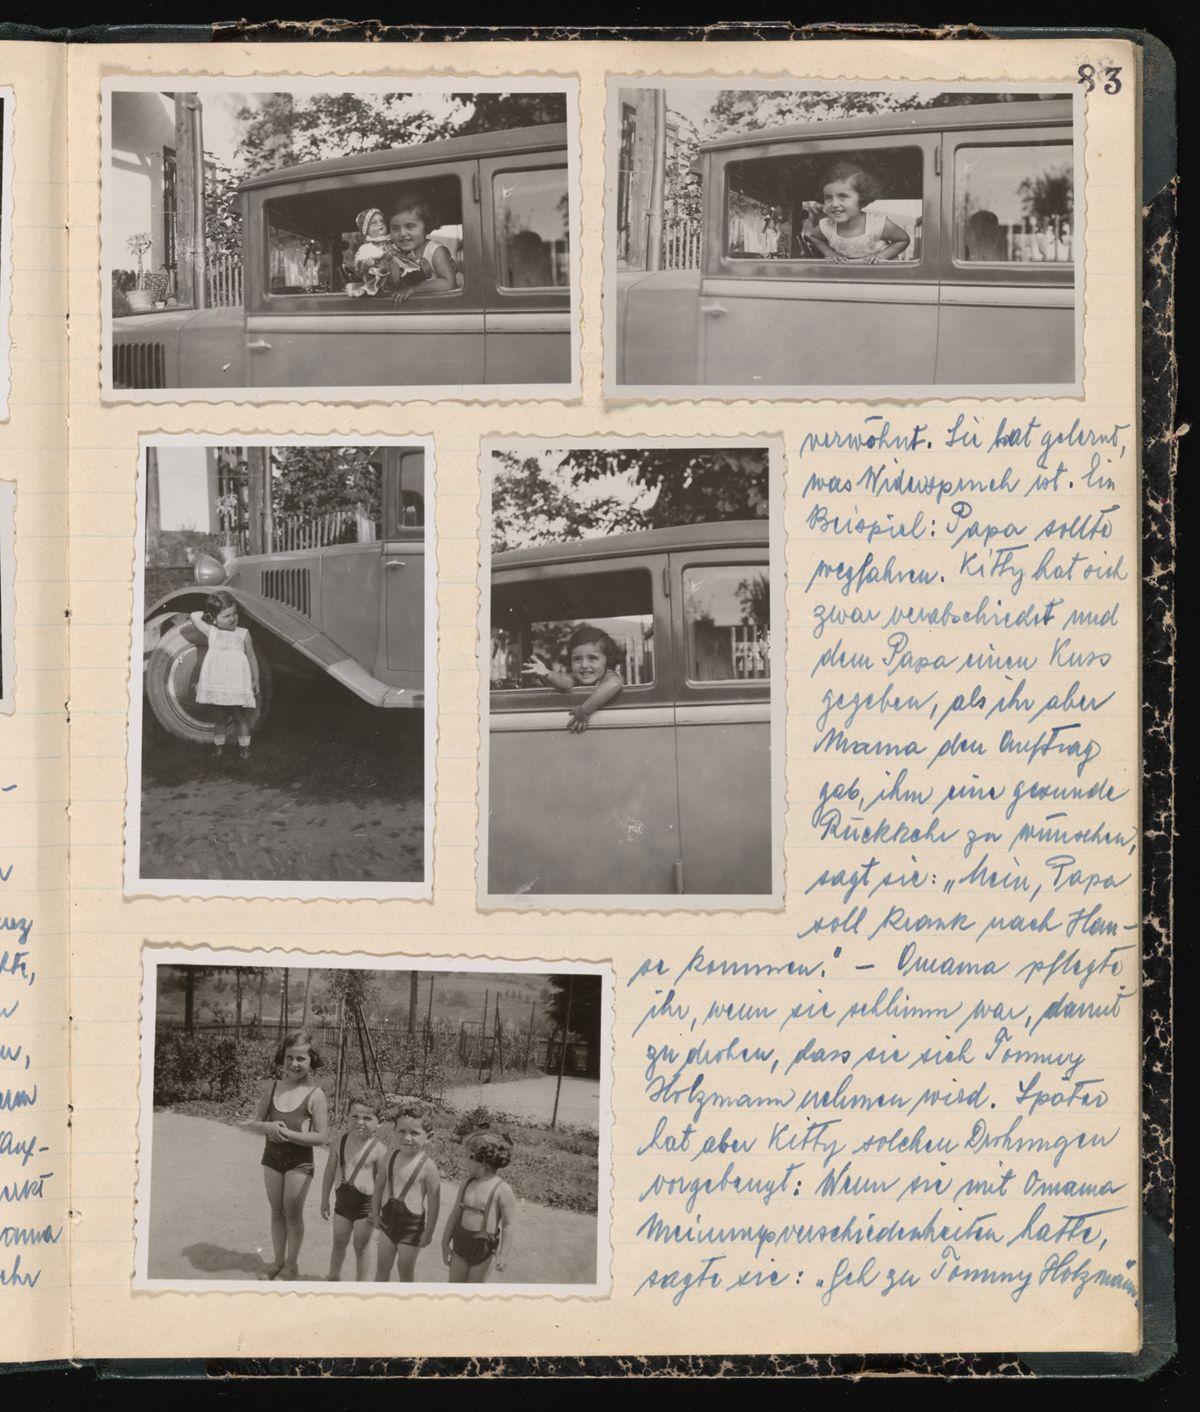 83
verwöhnt. Sie hat gelernt,
was Widerspruch ist. Ein
Beispiel: Papa sollte
wegfahren. Kitty hat sich
zwar verabschiedet und
dem Papa einen Kuss
gegeben, als ihr aber
Mama den Auftrag
gab, ihm eine gesunde
Rückkehr zu wünschen,
sagt sie: „Nein, Papa
soll krank nach Hau-
se kommen." – Omama pflegte
ihr, wenn sie schlimm war, damit
zu drohen, dass sie sich Tommy
Holzmann nehmen wird. Später
hat aber Kitty solchen Drohungen
vorgebeugt: Wenn sie mit Omama
Meinungsverschiedenheiten hatte,
sagte sie: „Geh zu Tommy Holzmann